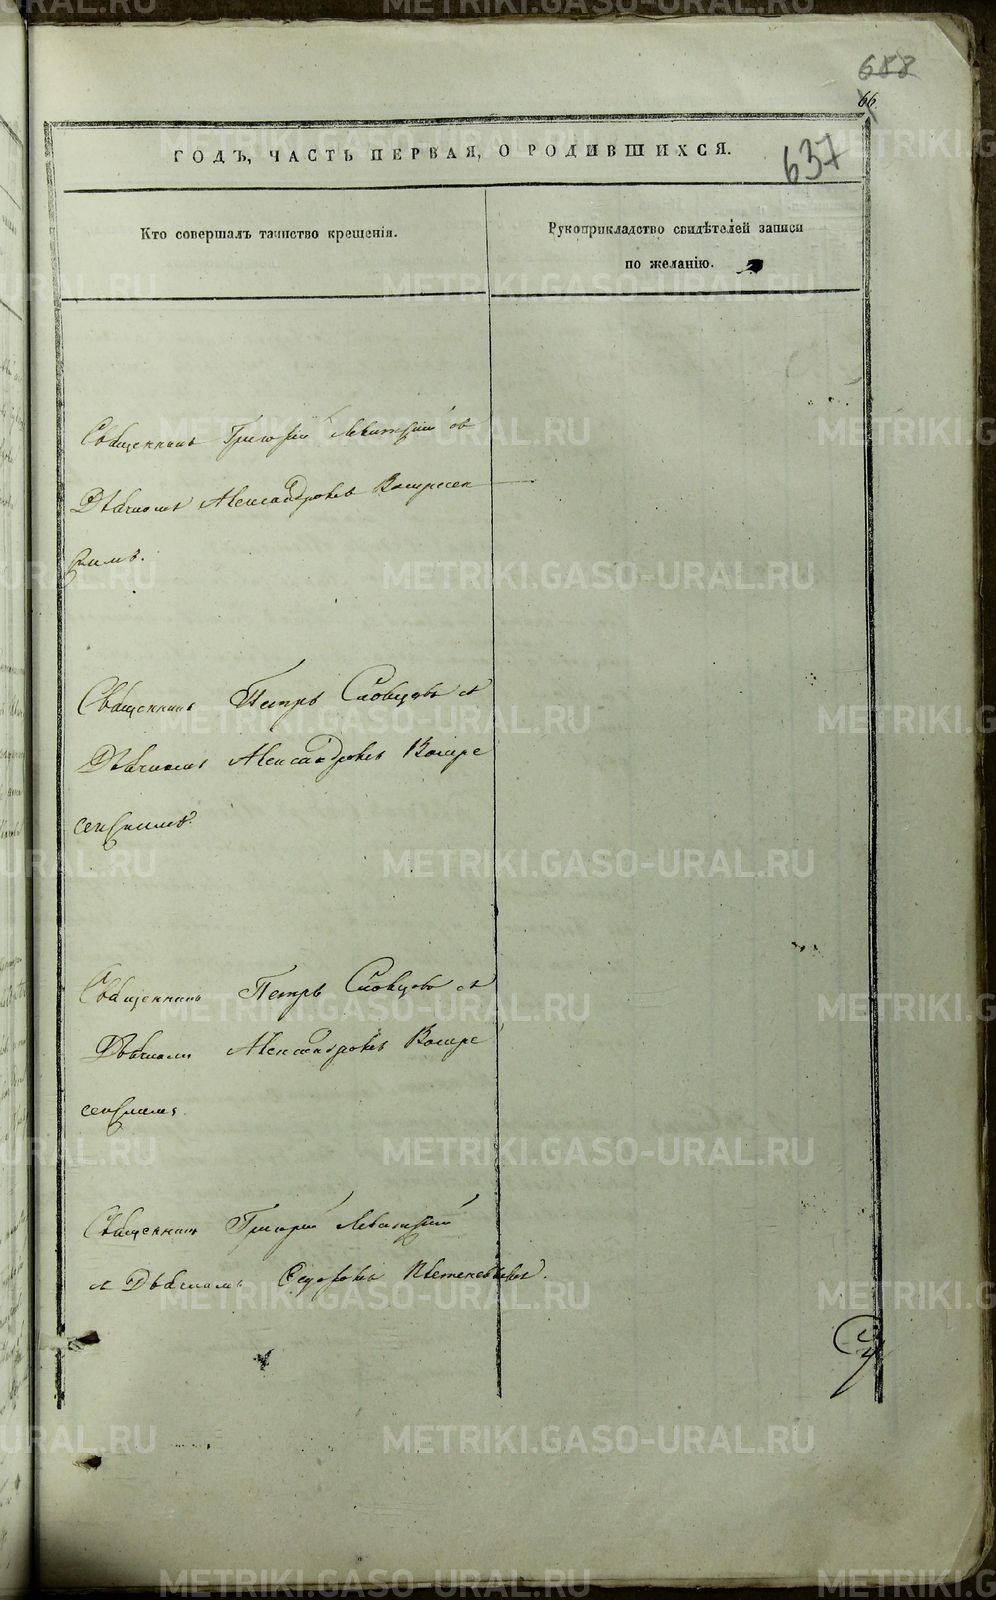 688
66
637
ГОДЪ, ЧАСТЬ ПЕРВАЯ, О РОДИВШИХСЯ.
Кто совершалъ таинство крещенія.
Рукоприкладство свидѣтелей записи
по желанію.
Священникъ Григорій Левитскій съ
Дьячкомъ Александромъ Воскресен
скимъ.
Священникъ Петръ Словцовъ съ
Дьячкомъ Александромъ Воскре
сенскимъ.
Священникъ Петръ Словцовъ съ
Дьячкомъ Александромъ Воскре
сенскимъ.
Священникъ Григорій Левитскій
и Дьякономъ
METRIKI.GASO-URAL.RU